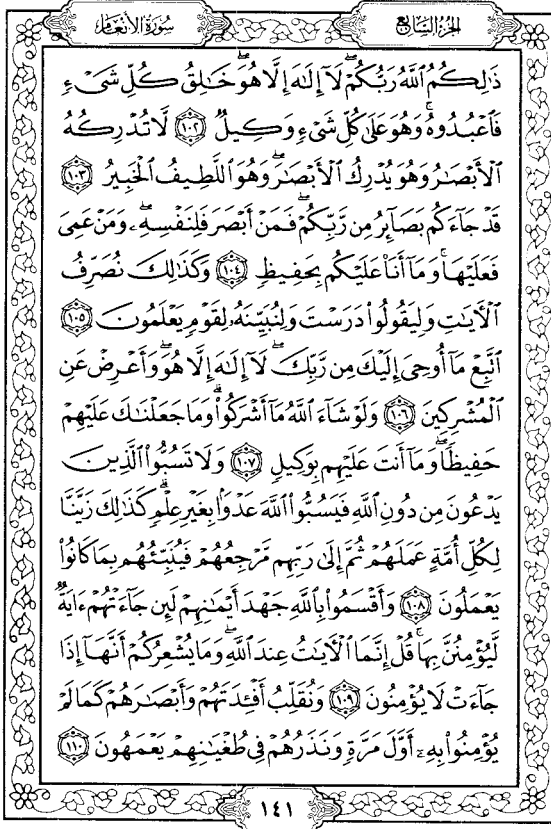 سورة الأنعام
الجزء السابع
ذَٰلِكُمُ ٱللَّهُ رَبُّكُمْ ۖ لَآ إِلَٰهَ إِلَّا هُوَ ۖ خَٰلِقُ كُلِّ شَىْءٍ
فَٱعْبُدُوهُ ۚ وَهُوَ عَلَىٰ كُلِّ شَىْءٍ وَكِيلٌ ١٠٢ لَّا تُدْرِكُهُ
ٱلْأَبْصَٰرُ وَهُوَ يُدْرِكُ ٱلْأَبْصَٰرَ ۖ وَهُوَ ٱللَّطِيفُ ٱلْخَبِيرُ ١٠٣
قَدْ جَآءَكُم بَصَآئِرُ مِن رَّبِّكُمْ ۖ فَمَنْ أَبْصَرَ فَلِنَفْسِهِۦ ۖ وَمَنْ عَمِىَ
فَعَلَيْهَا ۚ وَمَآ أَنَا۠ عَلَيْكُم بِحَفِيظٍ ١٠٤ وَكَذَٰلِكَ نُصَرِّفُ
ٱلْأَيَٰتِ وَلِيَقُولُوا۟ دَرَسْتَ وَلِنُبَيِّنَهُۥ لِقَوْمٍ يَعْلَمُونَ ١٠٥
ٱتَّبِعْ مَآ أُوحِىَ إِلَيْكَ مِن رَّبِّكَ ۖ لَآ إِلَٰهَ إِلَّا هُوَ ۖ وَأَعْرِضْ عَنِ
ٱلْمُشْرِكِينَ ١٠٦ وَلَوْ شَآءَ ٱللَّهُ مَآ أَشْرَكُوا۟ ۗ وَمَا جَعَلْنَٰكَ عَلَيْهِمْ
حَفِيظًا ۖ وَمَآ أَنتَ عَلَيْهِم بِوَكِيلٍ ١٠٧ وَلَا تَسُبُّوا۟ ٱلَّذِينَ
يَدْعُونَ مِن دُونِ ٱللَّهِ فَيَسُبُّوا۟ ٱللَّهَ عَدْوًۢا بِغَيْرِ عِلْمٍ ۗ كَذَٰلِكَ زَيَّنَّا
لِكُلِّ أُمَّةٍ عَمَلَهُمْ ثُمَّ إِلَىٰ رَبِّهِم مَّرْجِعُهُمْ فَيُنَبِّئُهُم بِمَا كَانُوا۟
يَعْمَلُونَ ١٠٨ وَأَقْسَمُوا۟ بِٱللَّهِ جَهْدَ أَيْمَٰنِهِمْ لَئِن جَآءَتْهُمْ ءَايَةٌ
لَّيُؤْمِنُنَّ بِهَا ۚ قُلْ إِنَّمَا ٱلْأَيَٰتُ عِندَ ٱللَّهِ ۖ وَمَا يُشْعِرُكُمْ أَنَّهَآ إِذَا
جَآءَتْ لَا يُؤْمِنُونَ ١٠٩ وَنُقَلِّبُ أَفْـِٔدَتَهُمْ وَأَبْصَٰرَهُمْ كَمَا لَمْ
يُؤْمِنُوا۟ بِهِۦٓ أَوَّلَ مَرَّةٍ وَنَذَرُهُمْ فِى طُغْيَٰنِهِمْ يَعْمَهُونَ ١١٠
١٤١